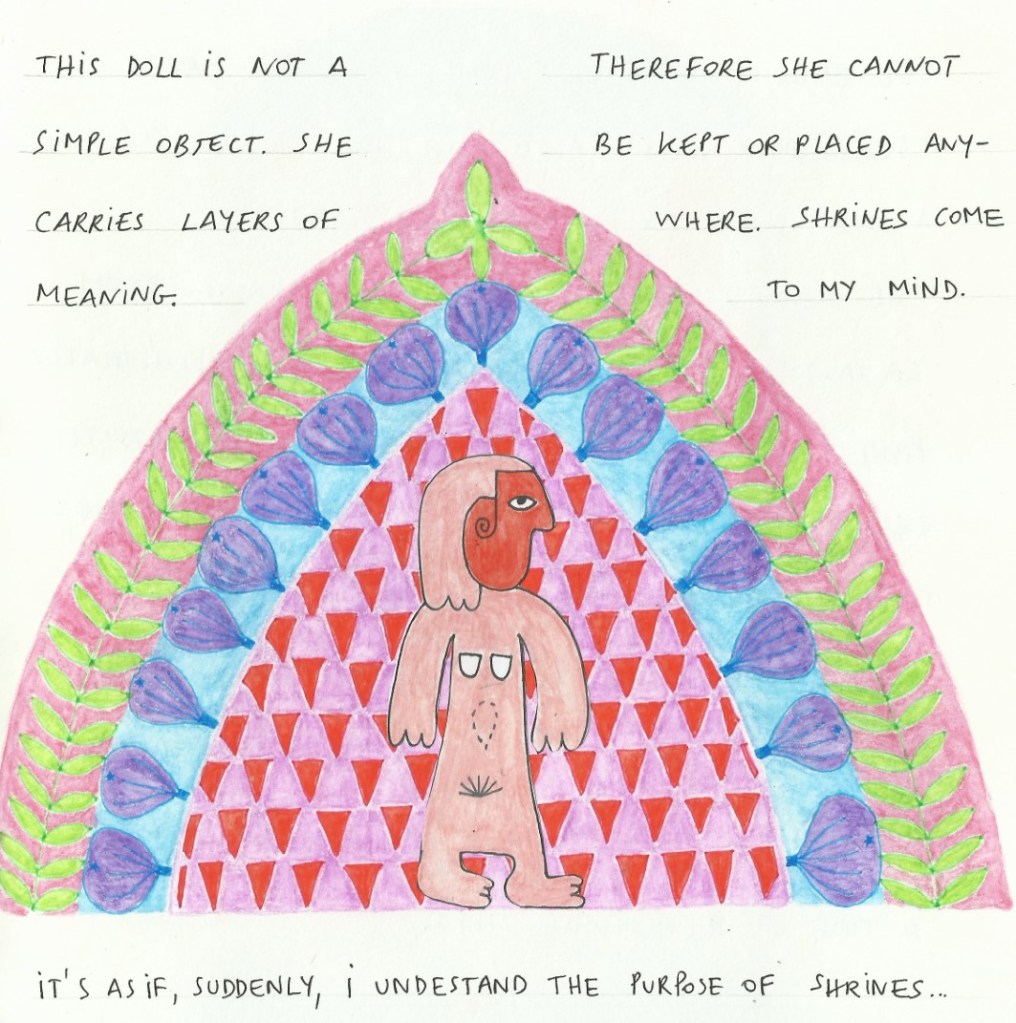 THIS DOLL IS NOT A
SIMPLE OBJECT. SHE
CARRIES LAYERS OF
MEANING.
THEREFORE SHE CANNOT
BE KEPT OR PLACED ANY-
WHERE. SHRINES COME
TO MY MIND.
IT'S AS IF, SUDDENLY, I UNDESTAND THE PURPOSE OF SHRINES...